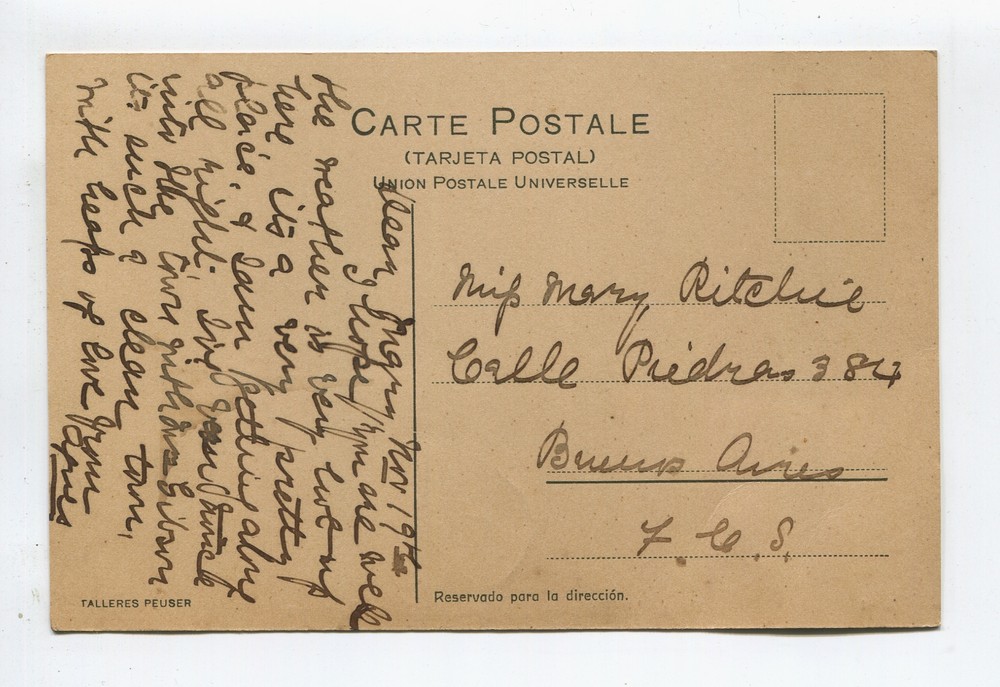 CARTE POSTALE
(TARJETA POSTAL)
UNION POSTALE UNIVERSELLE
Dear Mary Nov 19th
I hope you are well
the weather is very hot up
here its a very pretty
place & I am getting along
all right. Ive been
into the town with
its such a clean town,
with heaps of love from
Miss Mary Ritchie
Calle Piedras 384
Buenos Aires
F. C. S.
TALLERES PEUSER
Reservado para la dirección.